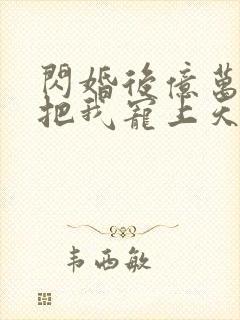 閃婚後億萬
把我寵上天
韦西敏